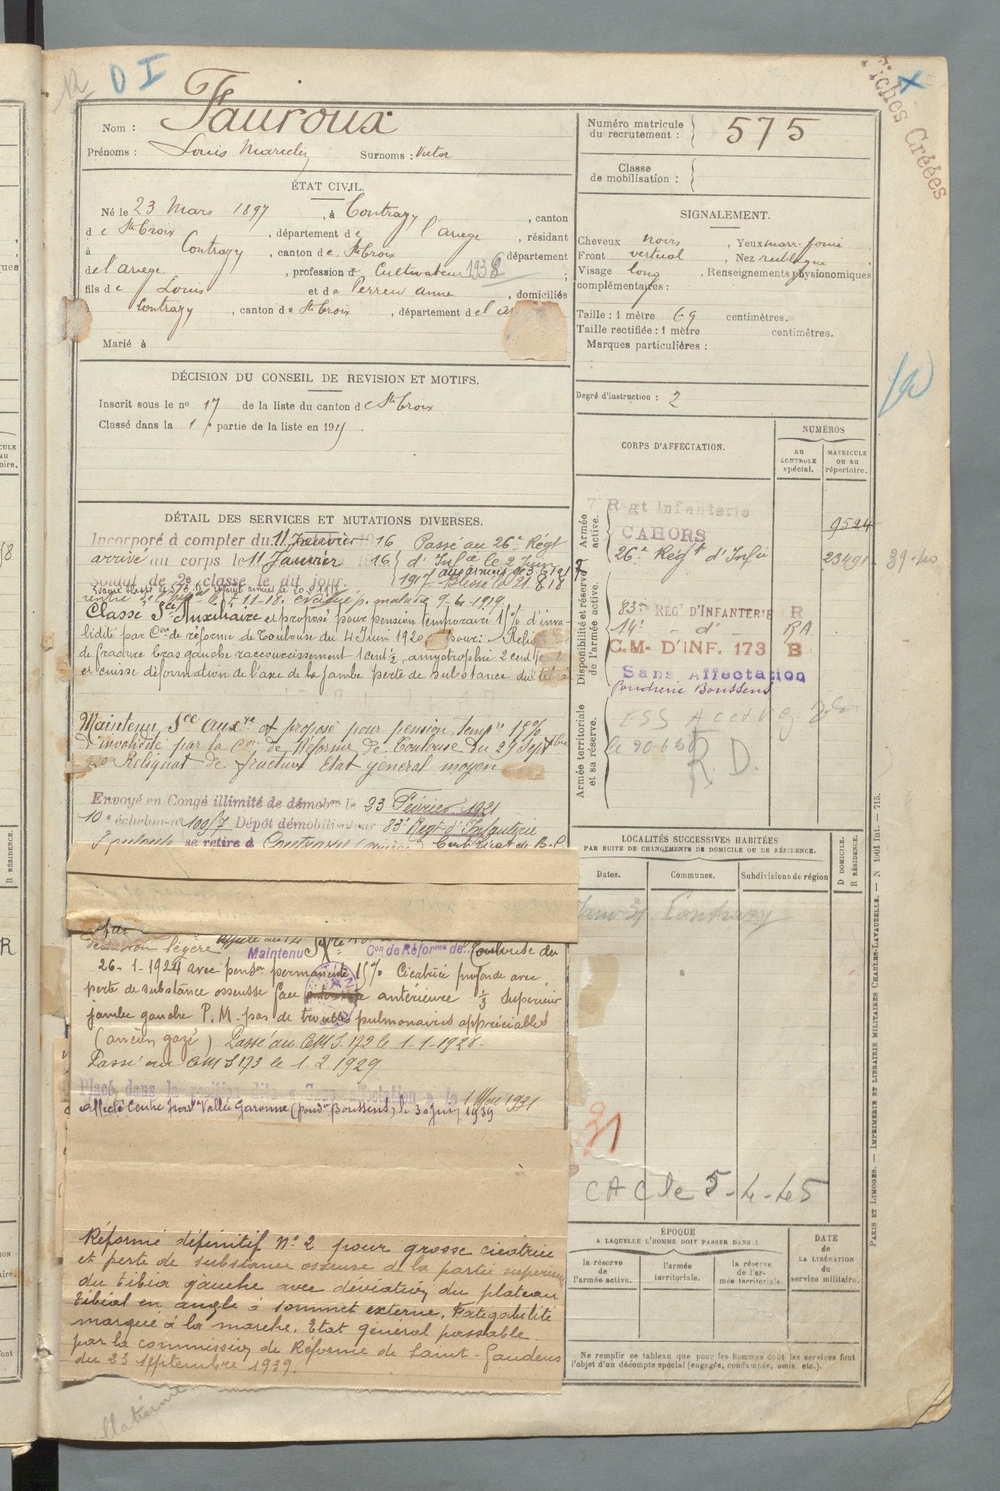 D I
Fiches Créées
Nom : Fauroux
Prénoms : Louis Marcelin Surnoms : Victor
Numéro matricule du recrutement : 575
Classe de mobilisation :
ÉTAT CIVIL.
Né le 23 Mars 1897, à Contrazy, canton
de Ste Croix, département de l'ariège, résidant
à Contrazy, canton de Ste Croix, département
de l'ariège, profession de Cultivateur 1938
fils de Louis et de Perreu Anne, domiciliés
à Contrazy, canton de Ste Croix, département de l'a
Marié à
SIGNALEMENT.
Cheveux noirs, Yeux marr. foncé
Front vertical, Nez rectiligne
Visage long, Renseignements physionomiques
complémentaires :
Taille : 1 mètre 69 centimètres.
Taille rectifiée : 1 mètre centimètres.
Marques particulières :
Degré d'instruction : 2
DÉCISION DU CONSEIL DE REVISION ET MOTIFS.
Inscrit sous le no 17 de la liste du canton de Ste Croix
Classé dans la 1 partie de la liste en 191
CORPS D'AFFECTATION.
NUMÉROS
AU CONTROLE spécial.
MATRICULE OU AU répertoire.
Armée active.
7e Regt Infanterie
CAHORS 9524
26e Régt d'Infie 23491 39-40
Disponibilité et réserve de l'armée active.
83e REGt D'INFANTERIE R
14e - d° - RA
C.M. D'INF. 173 B
Sans Affectation
Poudrerie Boussens
Armée territoriale et sa réserve.
R. D.
DÉTAIL DES SERVICES ET MUTATIONS DIVERSES.
Incorporé à compter du 11 Janvier 1916 Passé au 26e Régt
arrivé au corps le 11 Janvier 1916 d'Infie le 2 Juin
Soldat de 2e classe le dit jour. 1917 Blessé le 21 8 18
évacué p. maladie 9-6-1919.
Classé Sce Auxiliaire et proposé pour pension temporaire 1% d'inva
lidité par Con de réforme de Toulouse du 4 Juin 1920 pour : Reli
de fracture bras gauche raccourcissement 1 cent ½, amyotrophie 2 cent
et cuisse déformation de l'axe de la jambe perte de substance du tibia
Maintenu Sce auxre et proposé pour pension tempre 15%
d'invalidité par la Con de Réforme de Toulouse du 29 Septbre
Reliquat de fracture Etat général moyen
Envoyé en Congé illimité de démobon le 23 Février 1921
10e échelon no 109/7 Dépôt démobilisateur 83e Regt d'Infanterie
Toulouse se retire à Contrazy Certificat de B.C.
légère
Maintenu Con de Réforme de Toulouse du
26-1-1924 avec pensn permanente 15% Cicatrice profonde avec
perte de substance osseuse face antérieure 1/3 supérieur
jambe gauche P.M. pas de troubles pulmonaires appréciables
(ancien gazé) Passé au CM I. 172 le 1-1-1928.
Passé au CM I 173 le 1.2.1929
Placé dans la position dite « Sans affectation » le 1 Mai 1931
affecté Centre Vallée Garonne (poudie Boussens) le 30 Juin 1939
Réformé définitif No 2 pour grosse cicatrice
et perte de substance osseuse de la partie supérieure
du tibia gauche avec déviation du plateau
tibial en angle à sommet externe. Fatigabilité
marquée à la marche. Etat général passable.
par la commission de Réforme de Saint-Gaudens
du 23 septembre 1939.
LOCALITÉS SUCCESSIVES HABITÉES
PAR SUITE DE CHANGEMENTS DE DOMICILE OU DE RÉSIDENCE.
Dates. Communes. Subdivisions de région
D DOMICILE. R RÉSIDENCE.
Contrazy
CAC le 5-4-45
ÉPOQUE
A LAQUELLE L'HOMME DOIT PASSER DANS :
la réserve de l'armée active.
l'armée territoriale.
la réserve de l'armée territoriale.
DATE de LA LIBÉRATION du service militaire.
Ne remplir ce tableau que pour les hommes dont les services font
l'objet d'un décompte spécial (engagés, condamnés, omis, etc.).
PARIS ET LIMOGES. — IMPRIMERIE ET LIBRAIRIE MILITAIRES CHARLES-LAVAUZELLE. — N 1001 Int. - 715.